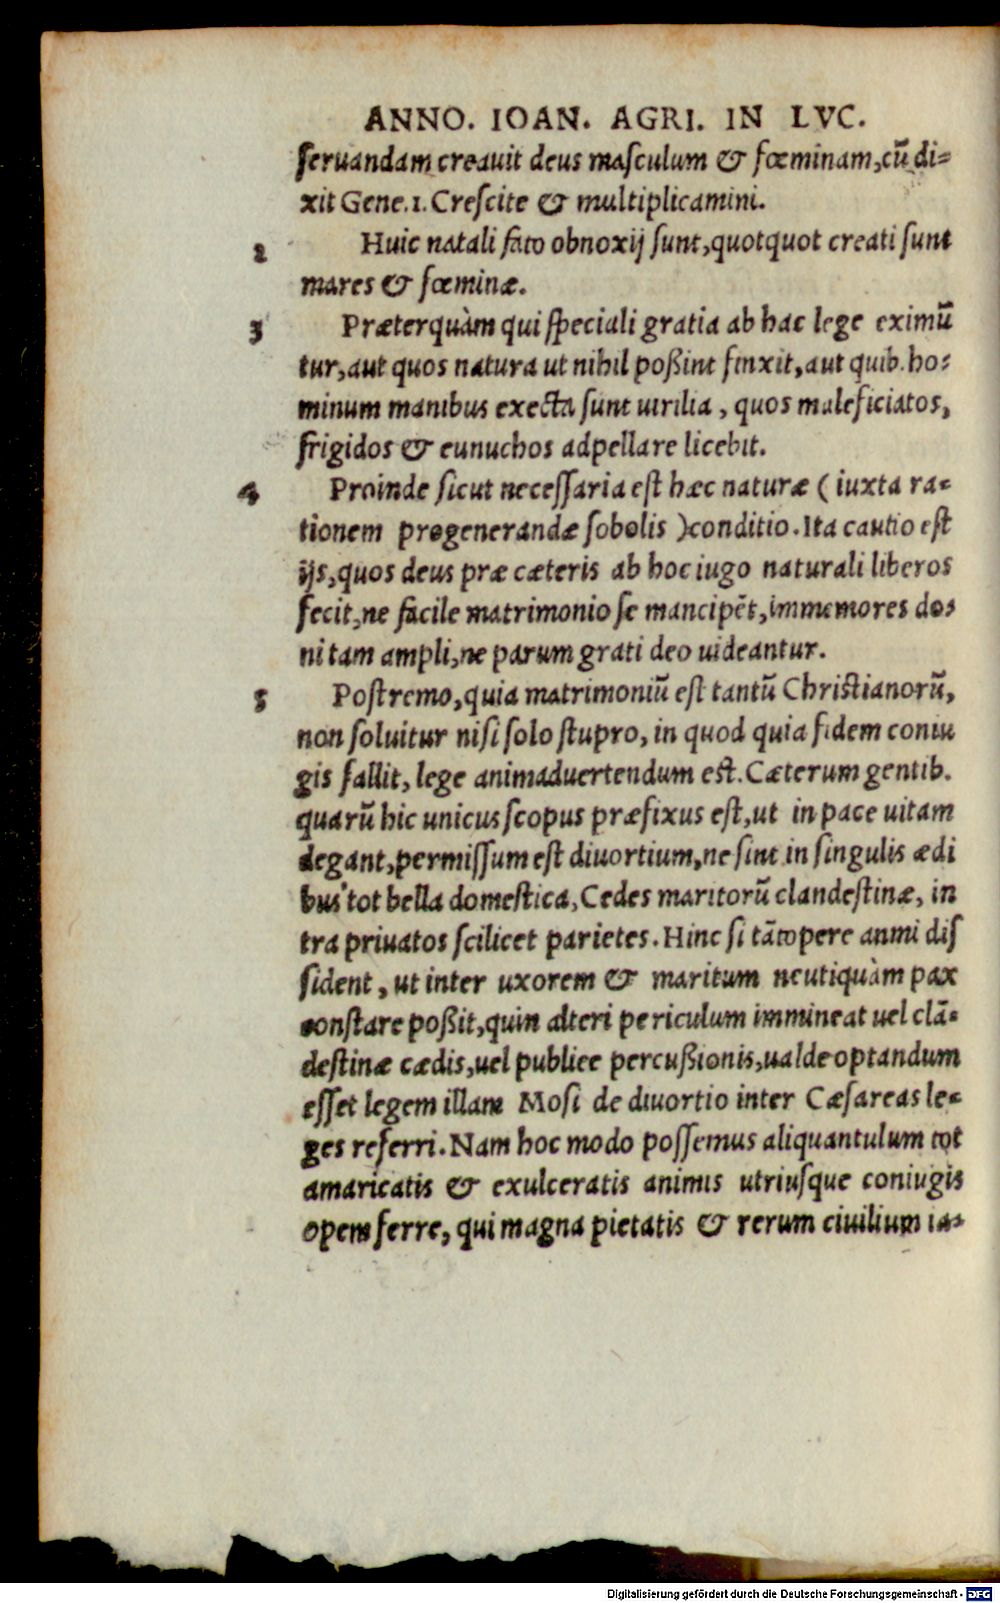 ANNO. IOAN. AGRI. IN LVC.
ſeruandam creauit deus maſculum & fœminam, cū di=
xit Gene. 1. Creſcite & multiplicamini.
2 Huic natali fato obnoxij ſunt, quotquot creati ſunt
mares & fœminæ.
3 Præterquàm qui ſpeciali gratia ab hac lege eximū
tur, aut quos natura ut nihil poßint finxit, aut quib. ho=
minum manibus execta ſunt uirilia, quos maleficiatos,
frigidos & eunuchos adpellare licebit.
4 Proinde ſicut neceſſaria eſt hæc naturæ ( iuxta ra=
tionem progenerandæ ſobolis )conditio. Ita cautio eſt
ijs, quos deus præ cæteris ab hoc iugo naturali liberos
fecit, ne facile matrimonio ſe mancipēt, immemores do=
ni tam ampli, ne parum grati deo uideantur.
5 Poſtremo, quia matrimoniū eſt tantū Chriſtianorū,
non ſoluitur niſi ſolo ſtupro, in quod quia fidem coniu
gis fallit, lege animaduertendum eſt. Cæterum gentib.
quarū hic unicus ſcopus præfixus eſt, ut in pace uitam
degant, permiſſum eſt diuortium, ne ſint in ſingulis ædi
bus tot bella domeſtica, Cedes maritorū clandeſtinæ, in
tra priuatos ſcilicet parietes. Hinc ſi tātopere anmi diſ
ſident, ut inter uxorem & maritum neutiquàm pax
conſtare poßit, quin alteri periculum immineat uel clā=
deſtinæ cædis, uel publice percußionis, ualde optandum
eſſet legem illam Moſi de diuortio inter Cæſareas le=
ges referri. Nam hoc modo poſſemus aliquantulum tot
amaricatis & exulceratis animis utriuſque coniugis
opem ferre, qui magna pietatis & rerum ciuilium ia=
Digitalisierung gefördert durch die Deutsche Forschungsgemeinschaft - DFG